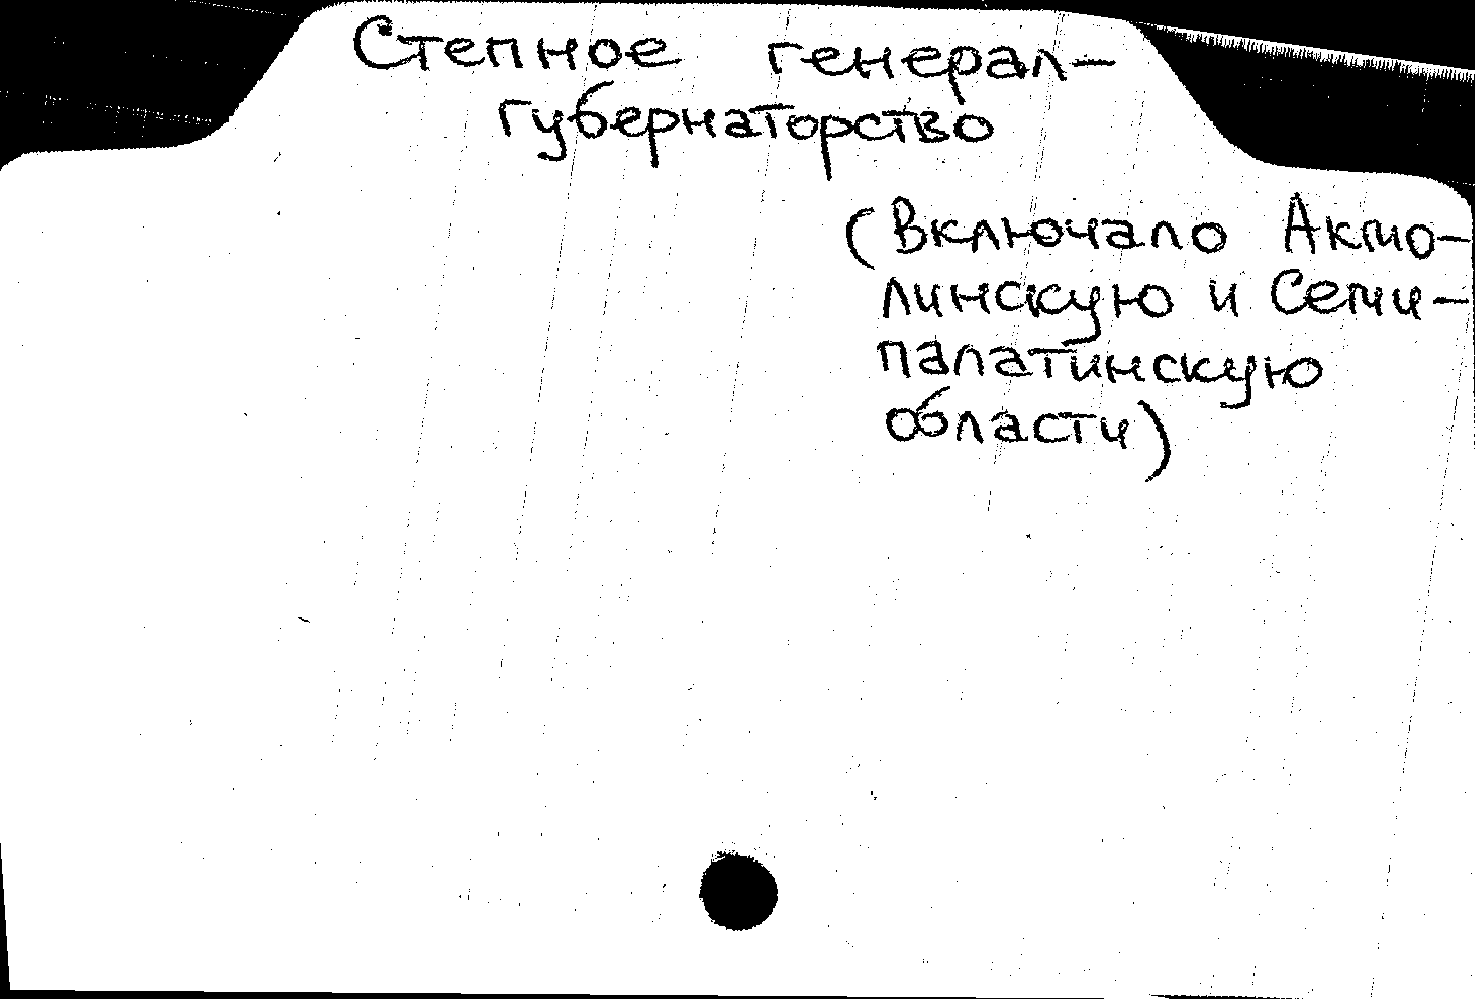 Степное генерал-
губернаторство
(Включало Акмо-
линскую и Семи-
палатинскую
области)